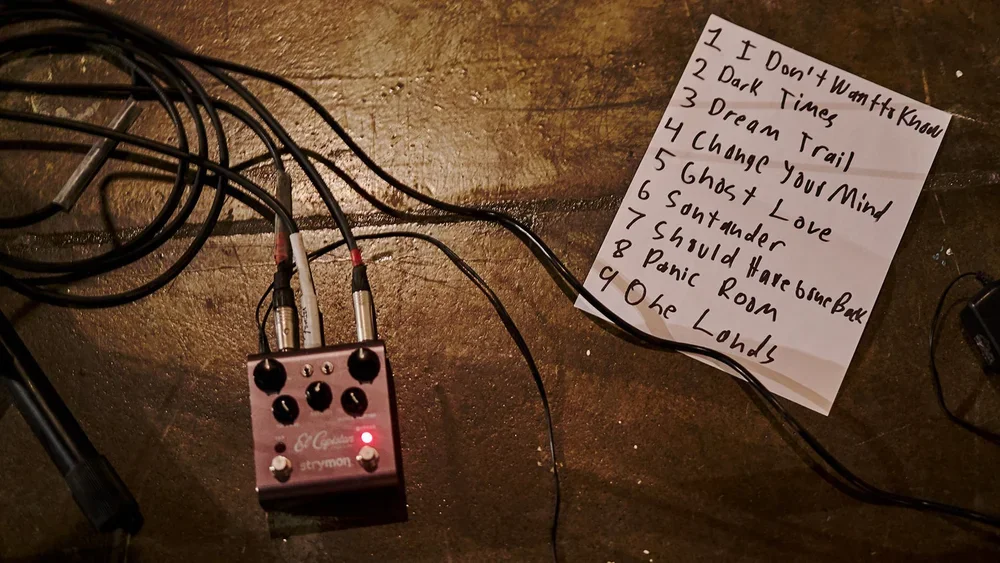 1 I Don't Want to Know
2 Dark Times
3 Dream Trail
4 Change Your Mind
5 Ghost Love
6 Santander
7 Should Have Gone Back
8 Panic Room
9 One Lands
El Capistan
strymon